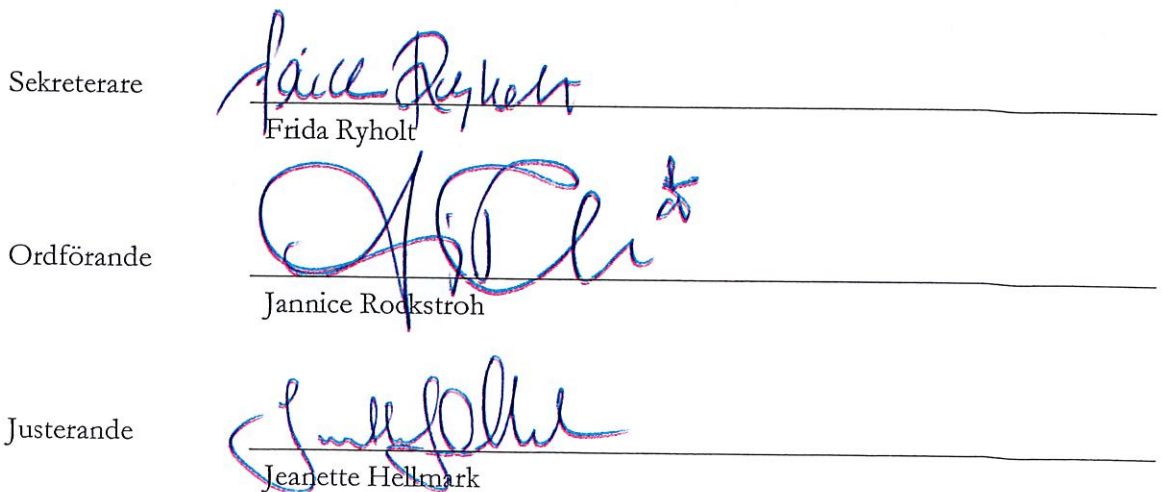 Sekreterare
Frida Ryholt
Ordförande
Jannice Rockstroh
Justerande
Jeanette Hellmark